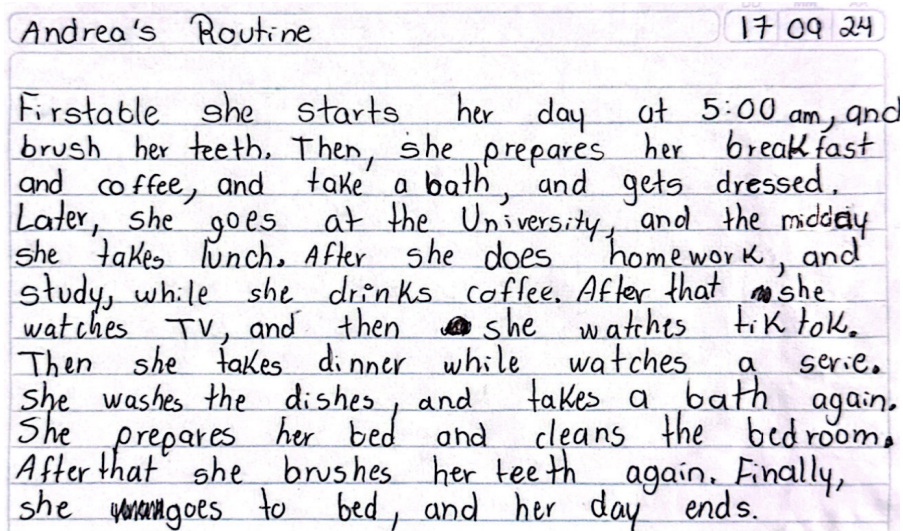 Andrea's Routine 17 09 24
Firstable she starts her day at 5:00 am, and
brush her teeth. Then, she prepares her breakfast
and coffee, and take a bath, and gets dressed.
Later, she goes at the University, and the midday
she takes lunch. After she does homework, and
study, while she drinks coffee. After that she
watches TV, and then she watches tik tok.
Then she takes dinner while watches a serie.
She washes the dishes, and takes a bath again.
She prepares her bed and cleans the bedroom.
After that she brushes her teeth again. Finally,
she goes to bed, and her day ends.